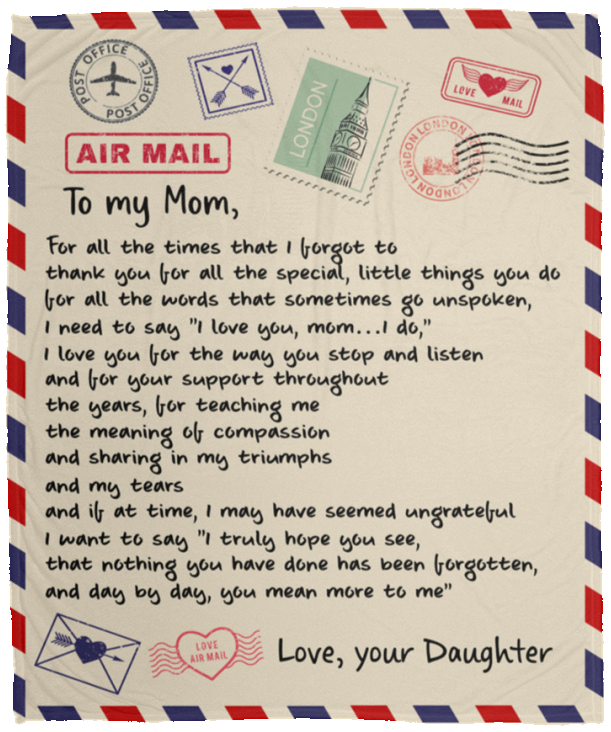 POST OFFICE
POST OFFICE
LONDON
LOVE MAIL
LONDON LONDON LONDON LONDON
AIR MAIL
To my Mom,
For all the times that I forgot to
thank you for all the special, little things you do
for all the words that sometimes go unspoken,
I need to say "I love you, mom...I do,"
I love you for the way you stop and listen
and for your support throughout
the years, for teaching me
the meaning of compassion
and sharing in my triumphs
and my tears
and if at time, I may have seemed ungrateful
I want to say "I truly hope you see,
that nothing you have done has been forgotten,
and day by day, you mean more to me"
LOVE
AIR MAIL
Love, your Daughter